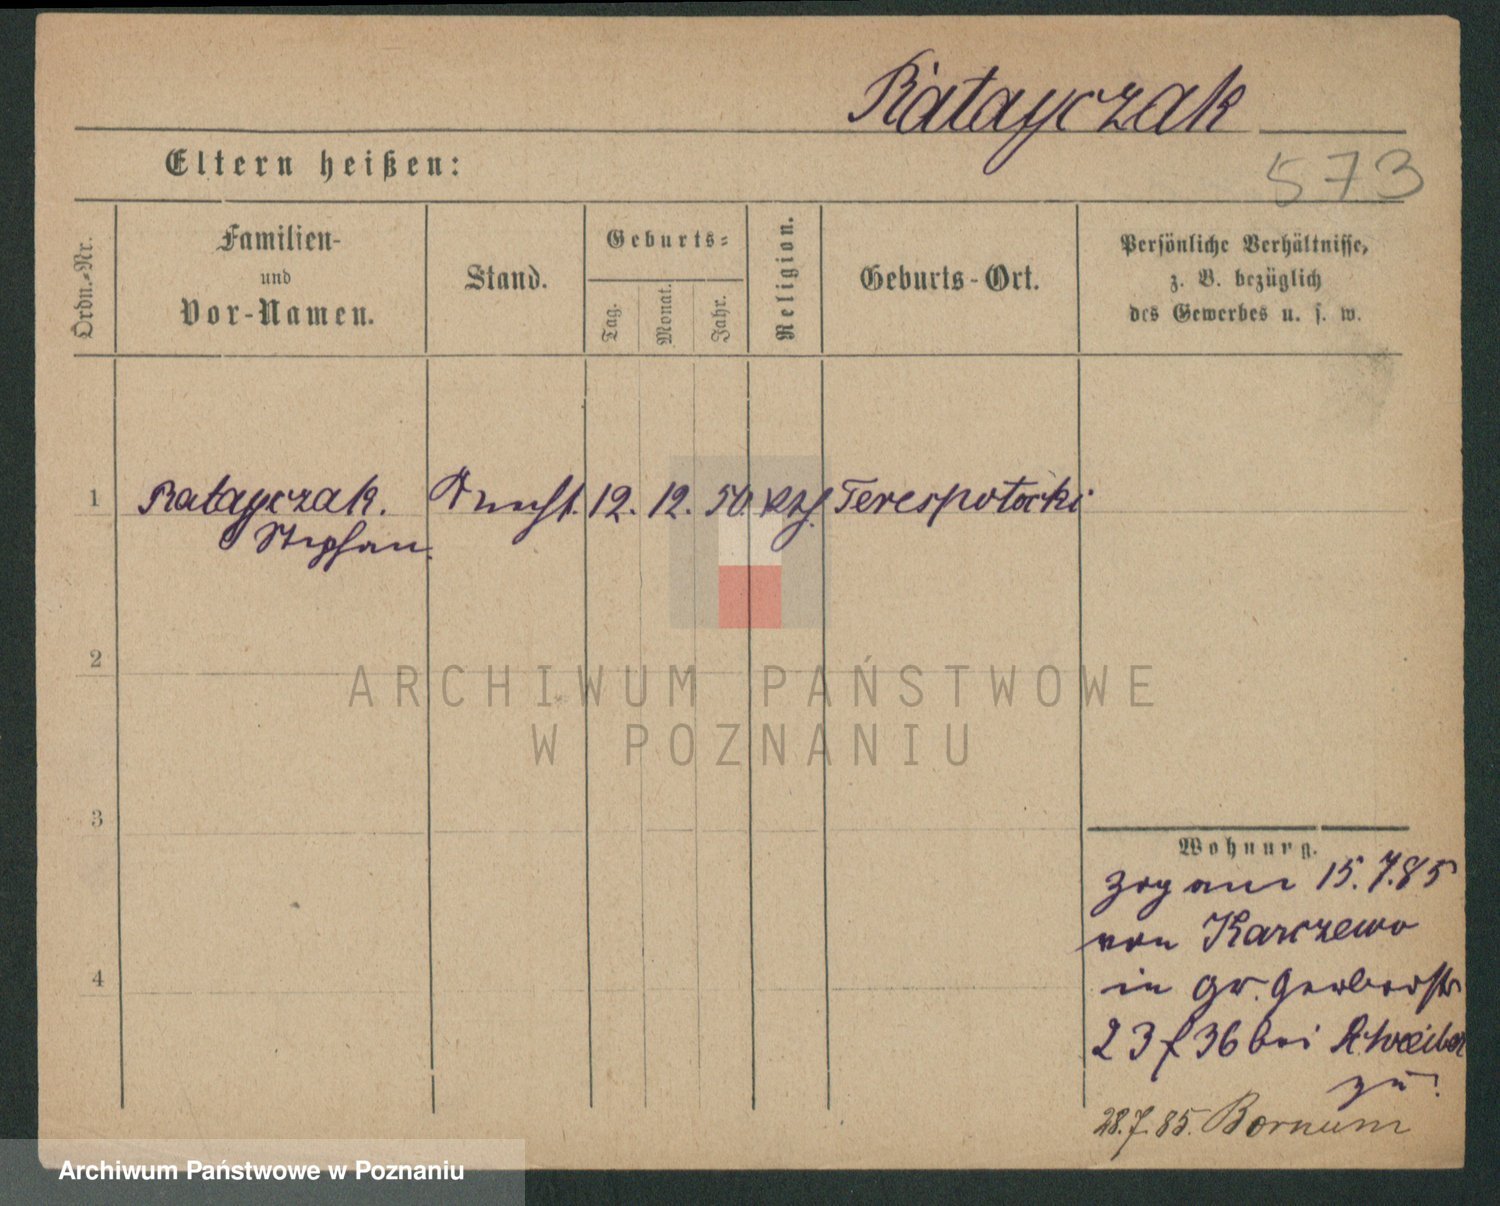 Ratayczak
573
Eltern heißen:
Ordn.-Nr.
Familien-
und
Vor-Namen.
Stand.
Geburts-
Tag.
Monat.
Jahr.
Religion.
Geburts-Ort.
Persönliche Verhältnisse,
z. B. bezüglich
des Gewerbes u. s. w.
1 Ratayczak. Knecht. 12. 12. 50. kth. Terespotocki
Stephan.
2
3
4
Wohnung.
zog am 15.7.85
von Karczewo
in gr. Gerberstr
23/36 bei
zu.
28.7.85. Bornum
ARCHIWUM PAŃSTWOWE
W POZNANIU
Archiwum Państwowe w Poznaniu